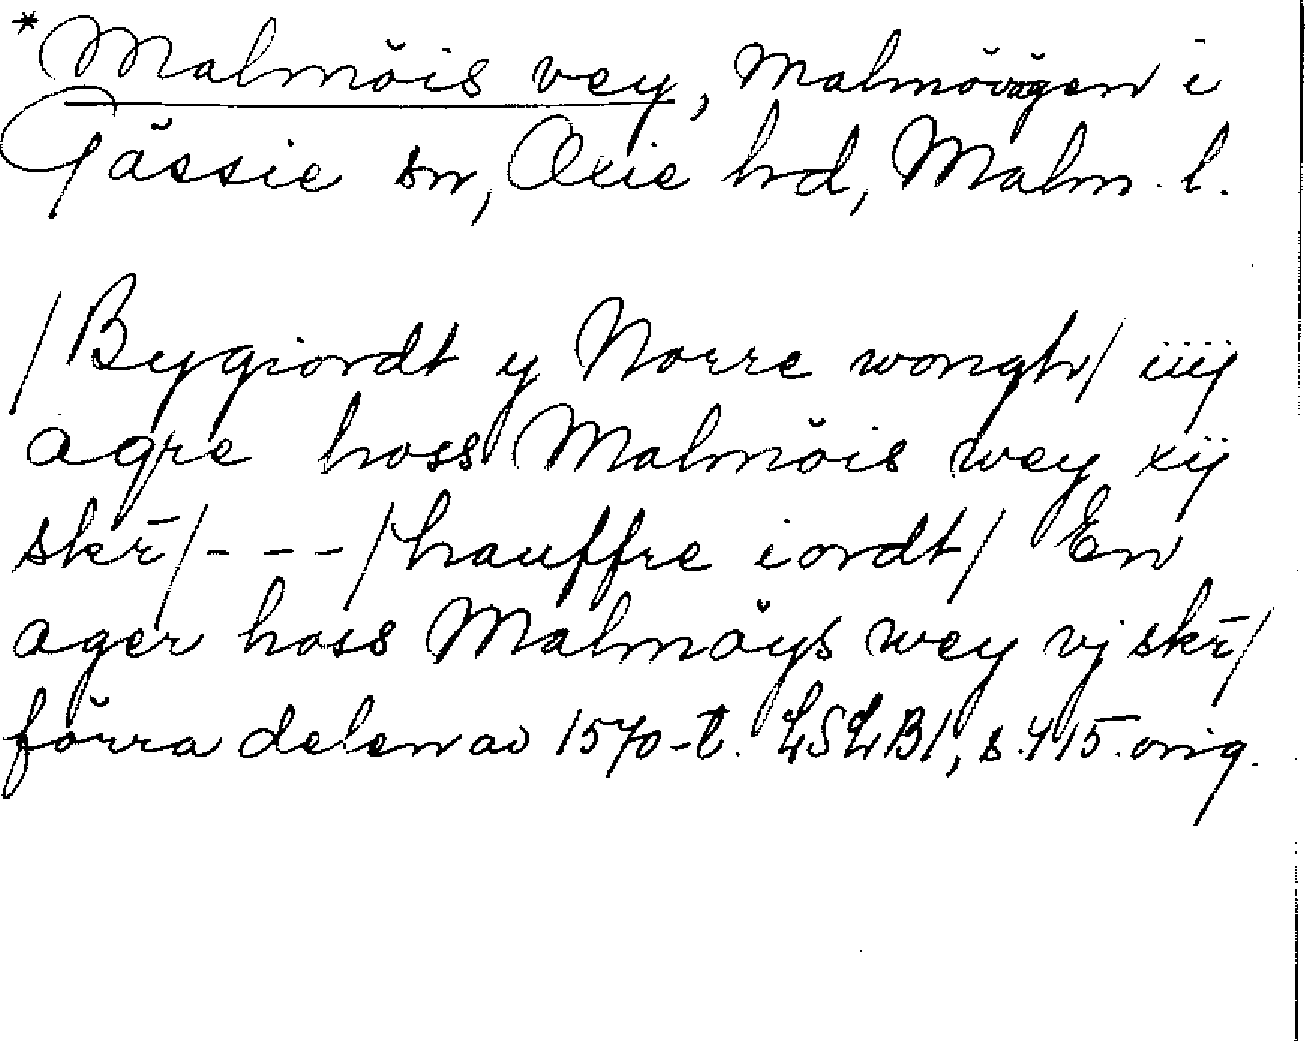 *Malmöis vey, Malmövägen i
Gässie sn, Oxie hd, Malm. l.
/Bygiordt y Norre wongh/ iiij
agre hoss Malmöis wey xij
skr̄/---/hauffre iordt/ En
ager hoss Malmöys wey vj skr̄/
förra delen av 1570-t. LSLB1, s. 415. orig.